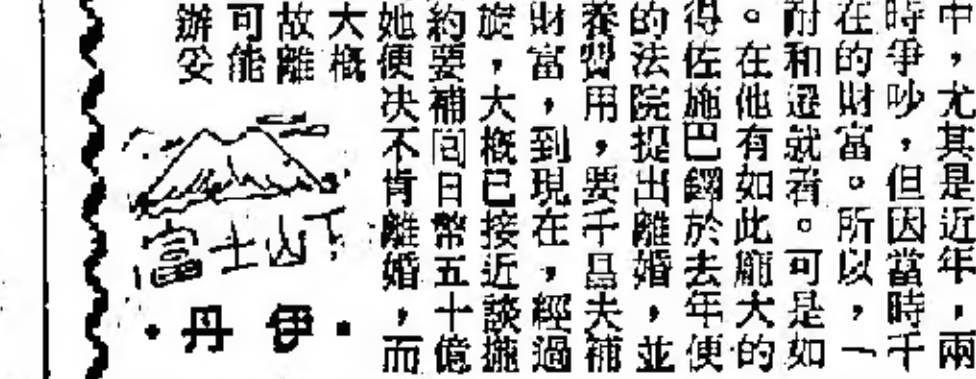 中，尤其是近年，兩
時爭吵，但因當時千
在的財富。所以，一
耐和遷就着。可是如
。在他有如此龐大的
得佐施巴鐸於去年便
的法院提出離婚，並
養費用，要千昌夫補
財富，到現在，經過
旋，大概已接近談攏
約要補回日幣五十億
她便决不肯離婚，而
大概
故離
可能
辦妥
富士山下
·丹伊·